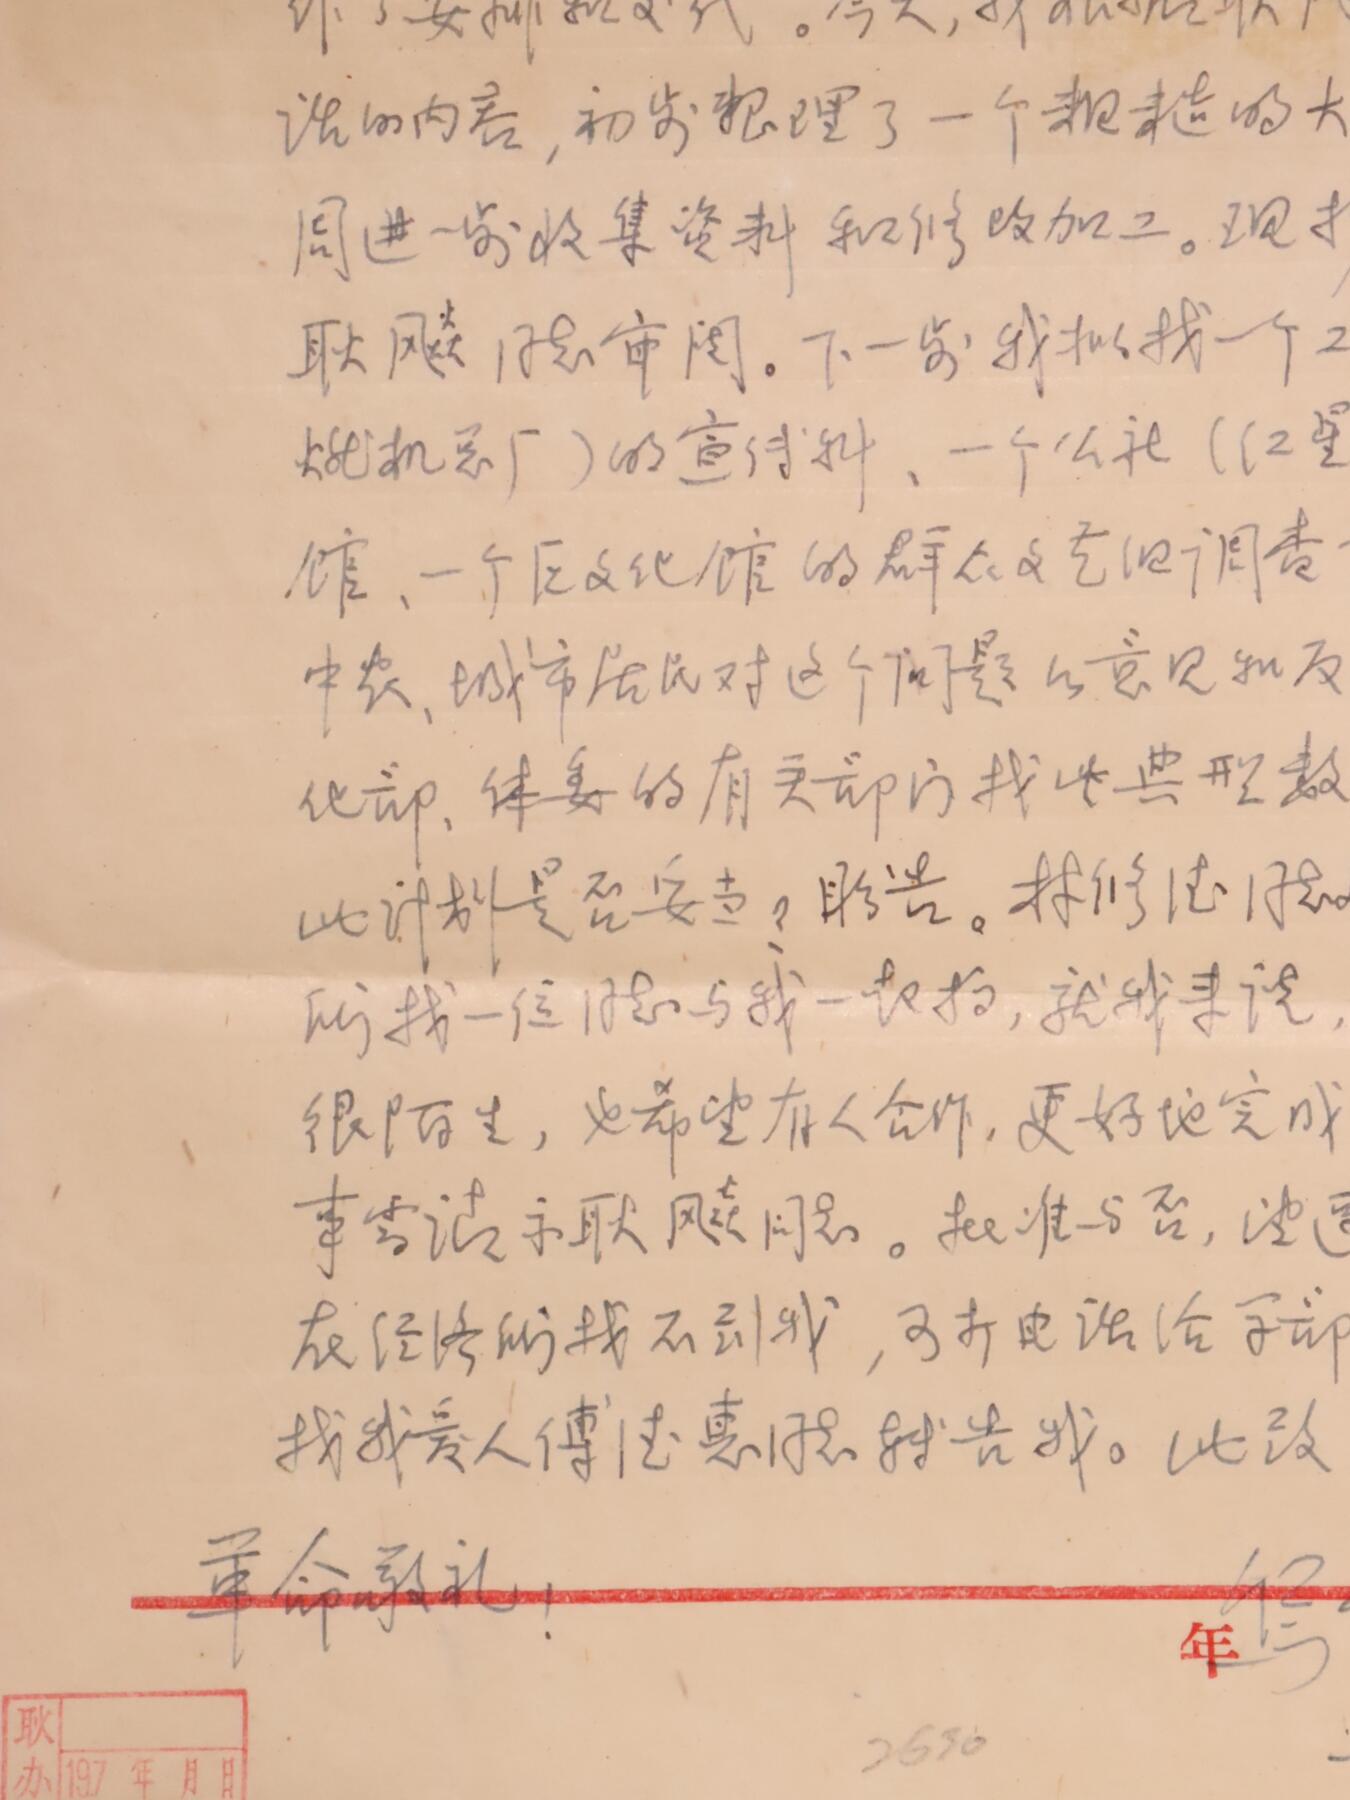 作了安排和交代。今天，我根据耿
话的内容，初步整理了一个粗糙的大
周进一步收集资料和修改加工。现
耿飚同志审阅。下一步我拟找一个工
燃机总厂）的宣传科、一个公社（红星
馆、一个区文化馆的群众文艺组调查
中农、城市居民对这个问题的意见和反
化部、体委的有关部门找些典型数
此计划是否妥当？盼告。林修德同志
所找一位同志与我一起搞，就我来说，
很陌生，也希望有人合作，更好地完成
事需请示耿飚同志。批准与否，望
在经济所找不到我，可打电话给 部
找我爱人傅德惠同志转告我。此致
革命敬礼！
年
耿办
197 年 月 日
2690